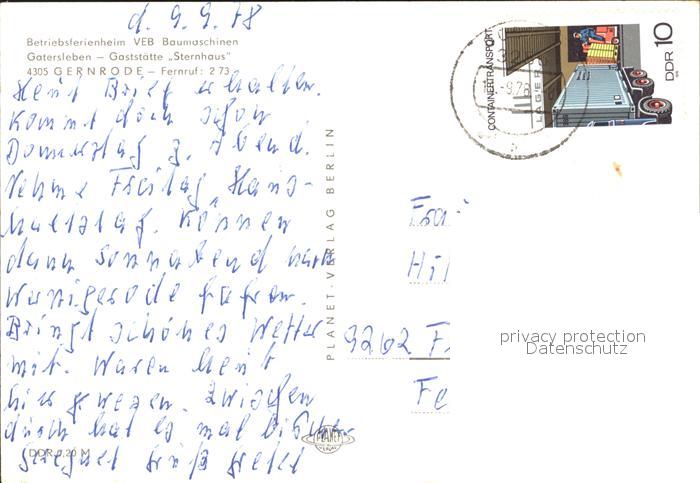 d. 9. 9. 78
Betriebsferienheim VEB Baumaschinen
Gatersleben — Gaststätte „Sternhaus"
4305 GERNRODE — Fernruf: 2 73
Heut Brief erhalten.
Kommt doch schon
Donnerstag z. Abend.
Nehme Freitag Haus-
haltstag. Können
dann Sonnabend nach
Wernigerode fahren.
Bringt schönes Wetter
mit. Waren heut
hier gewesen. Zwischen
durch hat es mal bißchen
geregnet
DDR 0,20 M
PLANET-VERLAG BERLIN
PLANET
VERLAG
CONTAINERTRANSPORT
DDR 10
LAGER
-9.78
Frau
Hil
9202 Fr
Fe
privacy protection
Datenschutz